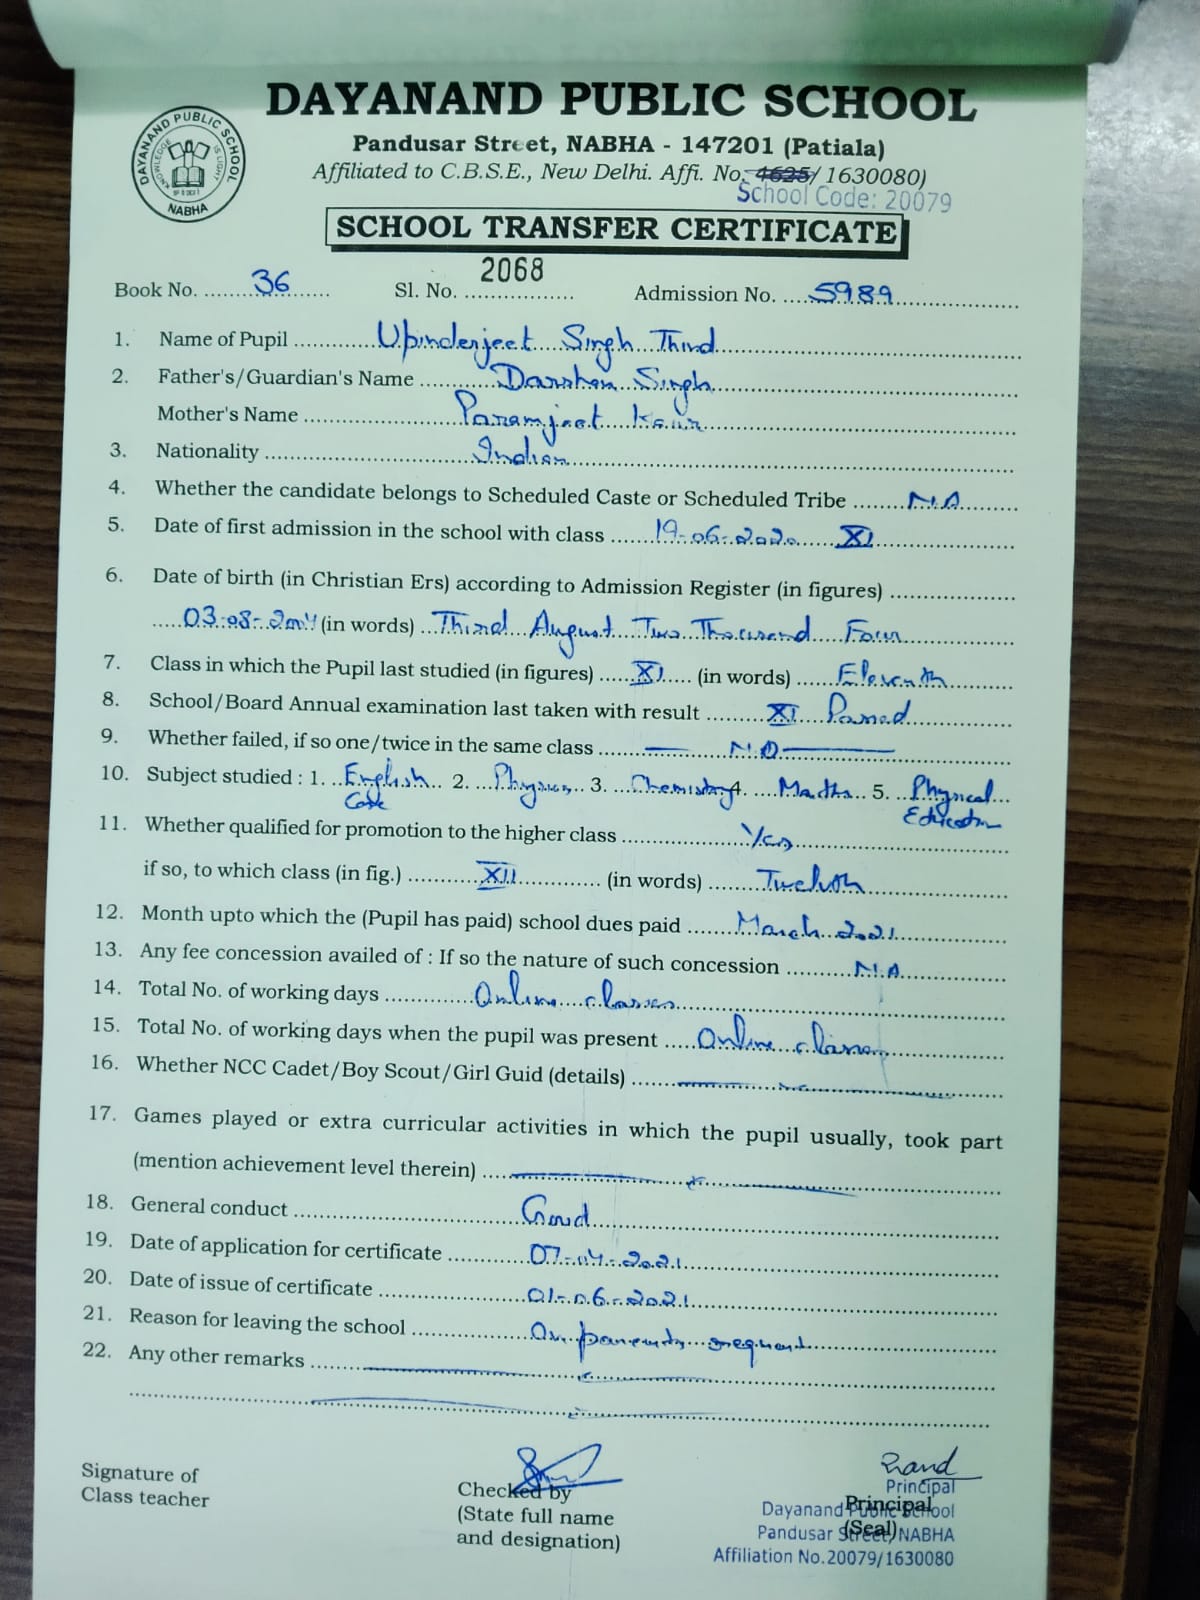 DAYANAND PUBLIC SCHOOL
Pandusar Street, NABHA - 147201 (Patiala)
Affiliated to C.B.S.E., New Delhi. Affi. No. 4625/ 1630080)
School Code: 20079
DAYANAND PUBLIC SCHOOL
KNOWLEDGE IS LIGHT
NABHA
SCHOOL TRANSFER CERTIFICATE
Book No. 36 Sl. No. 2068 Admission No. 5989
1. Name of Pupil Upinderjeet Singh Thind
2. Father's/Guardian's Name Darshan Singh
Mother's Name Paramjeet Kaur
3. Nationality Indian
4. Whether the candidate belongs to Scheduled Caste or Scheduled Tribe N.A.
5. Date of first admission in the school with class 19-06-2020 XI
6. Date of birth (in Christian Ers) according to Admission Register (in figures)
03-08-2004 (in words) Third August Two Thousand Four
7. Class in which the Pupil last studied (in figures) XI (in words) Eleventh
8. School/Board Annual examination last taken with result XI Passed
9. Whether failed, if so one/twice in the same class — N.O —
10. Subject studied : 1. English 2. Physics 3. Chemistry 4. Maths 5. Physical
Core Education
11. Whether qualified for promotion to the higher class Yes
if so, to which class (in fig.) XII (in words) Twelvth
12. Month upto which the (Pupil has paid) school dues paid March 2021
13. Any fee concession availed of : If so the nature of such concession N.A.
14. Total No. of working days Online classes
15. Total No. of working days when the pupil was present Online classes
16. Whether NCC Cadet/Boy Scout/Girl Guid (details)
17. Games played or extra curricular activities in which the pupil usually, took part
(mention achievement level therein)
18. General conduct Good
19. Date of application for certificate 07-04-2021
20. Date of issue of certificate 01-06-2021
21. Reason for leaving the school On parents request
22. Any other remarks
Signature of
Class teacher
Checked by
(State full name
and designation)
Principal
(Seal)
Principal
Dayanand Public School
Pandusar Street, NABHA
Affiliation No.20079/1630080